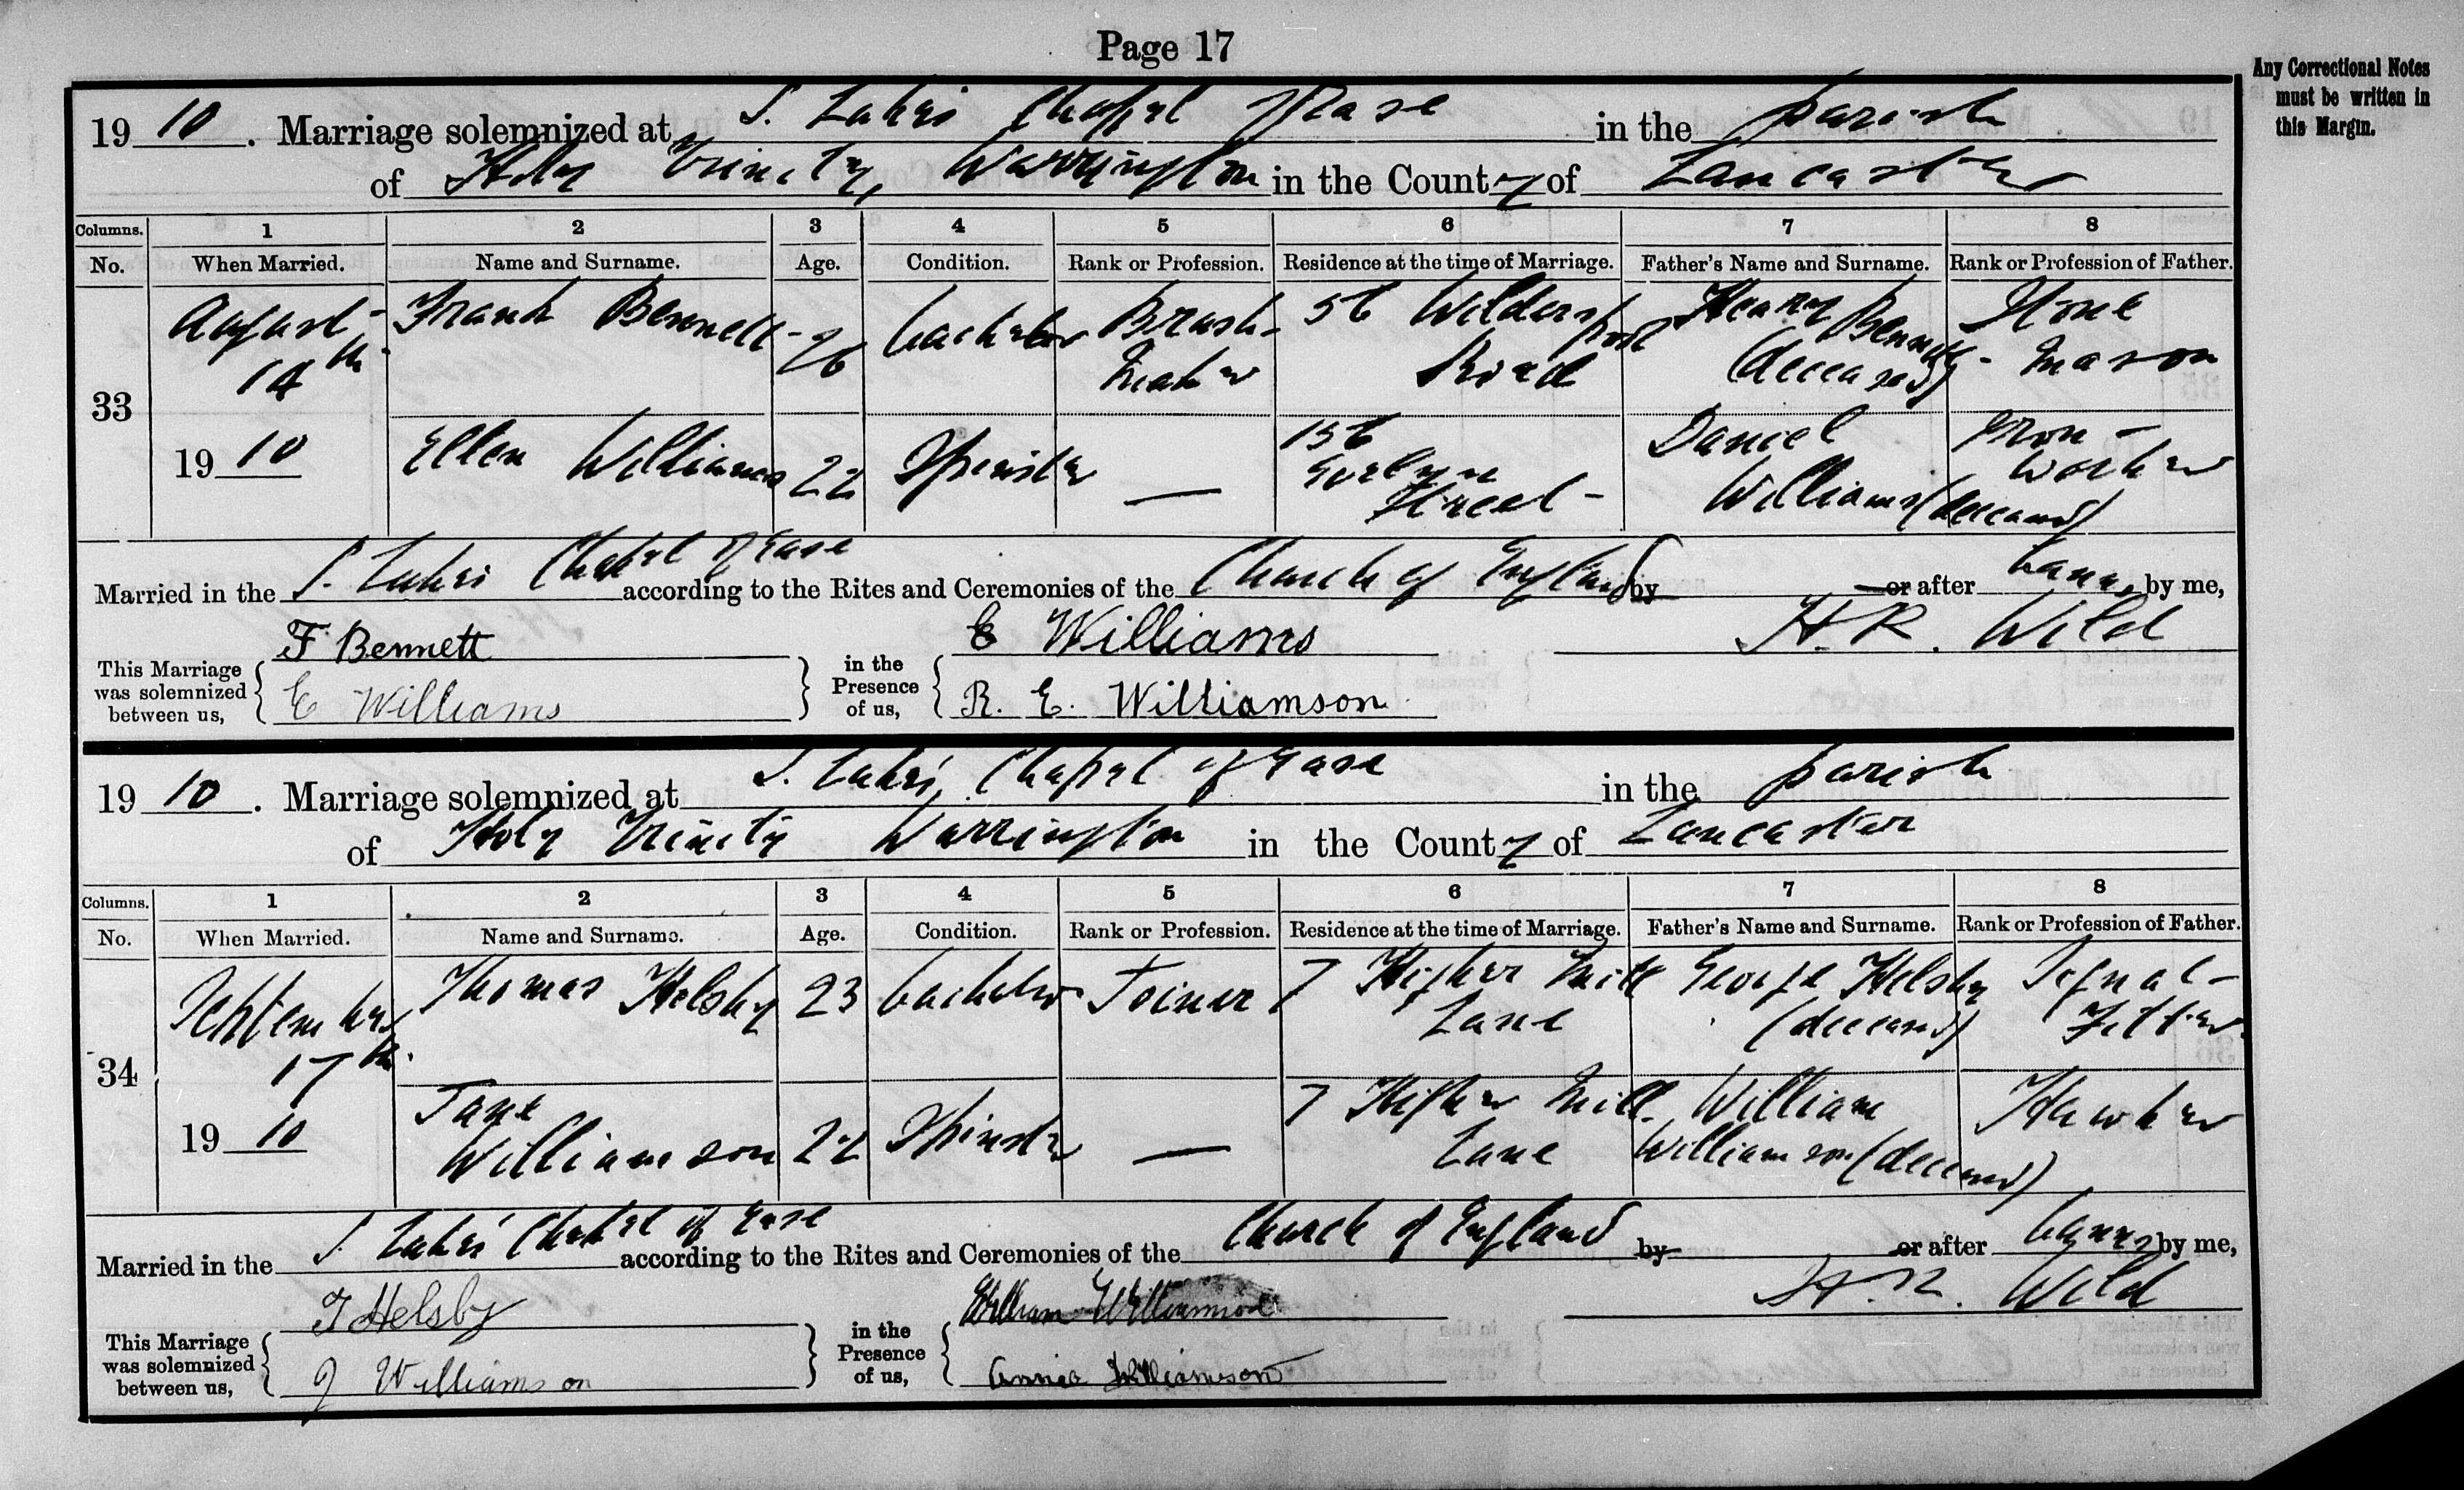 Page 17
Any Correctional Notes
must be written in
this Margin.
1910. Marriage solemnized at S. Lukes Chapel of Ease in the parish
of Holy Trinity, Warrington in the County of Lancaster
Columns. 1 2 3 4 5 6 7 8
No. When Married. Name and Surname. Age. Condition. Rank or Profession. Residence at the time of Marriage. Father's Name and Surname. Rank or Profession of Father.
33 August 14th 1910 Frank Bennett 26 bachelor Brush-Maker 56 Wilderspool Road Henry Bennett (deceased) Stone-Mason
Ellen Williams 22 Spinster — 156 Evelyn Street Daniel Williams (deceased) Iron-worker
Married in the S. Luke's Chapel of Ease according to the Rites and Ceremonies of the Church of England by or after banns by me,
F Bennett E Williams H. R. Wild
This Marriage was solemnized between us, E Williams in the Presence of us, R. E. Williamson
1910. Marriage solemnized at S. Luke's, Chapel of Ease in the parish
of Holy Trinity Warrington in the County of Lancaster
Columns. 1 2 3 4 5 6 7 8
No. When Married. Name and Surname. Age. Condition. Rank or Profession. Residence at the time of Marriage. Father's Name and Surname. Rank or Profession of Father.
34 September 17th 1910 Thomas Helsby 23 bachelor Joiner 7 Higher Mill Lane George Helsby (deceased) Signal-Fitter
Jane Williamson 22 Spinster — 7 Higher Mill Lane William Williamson (deceased) Hawker
Married in the S. Luke's Chapel of Ease according to the Rites and Ceremonies of the Church of England by or after banns by me,
T Helsby William Williamson H. R. Wild
This Marriage was solemnized between us, J Williamson in the Presence of us, Annie Williamson